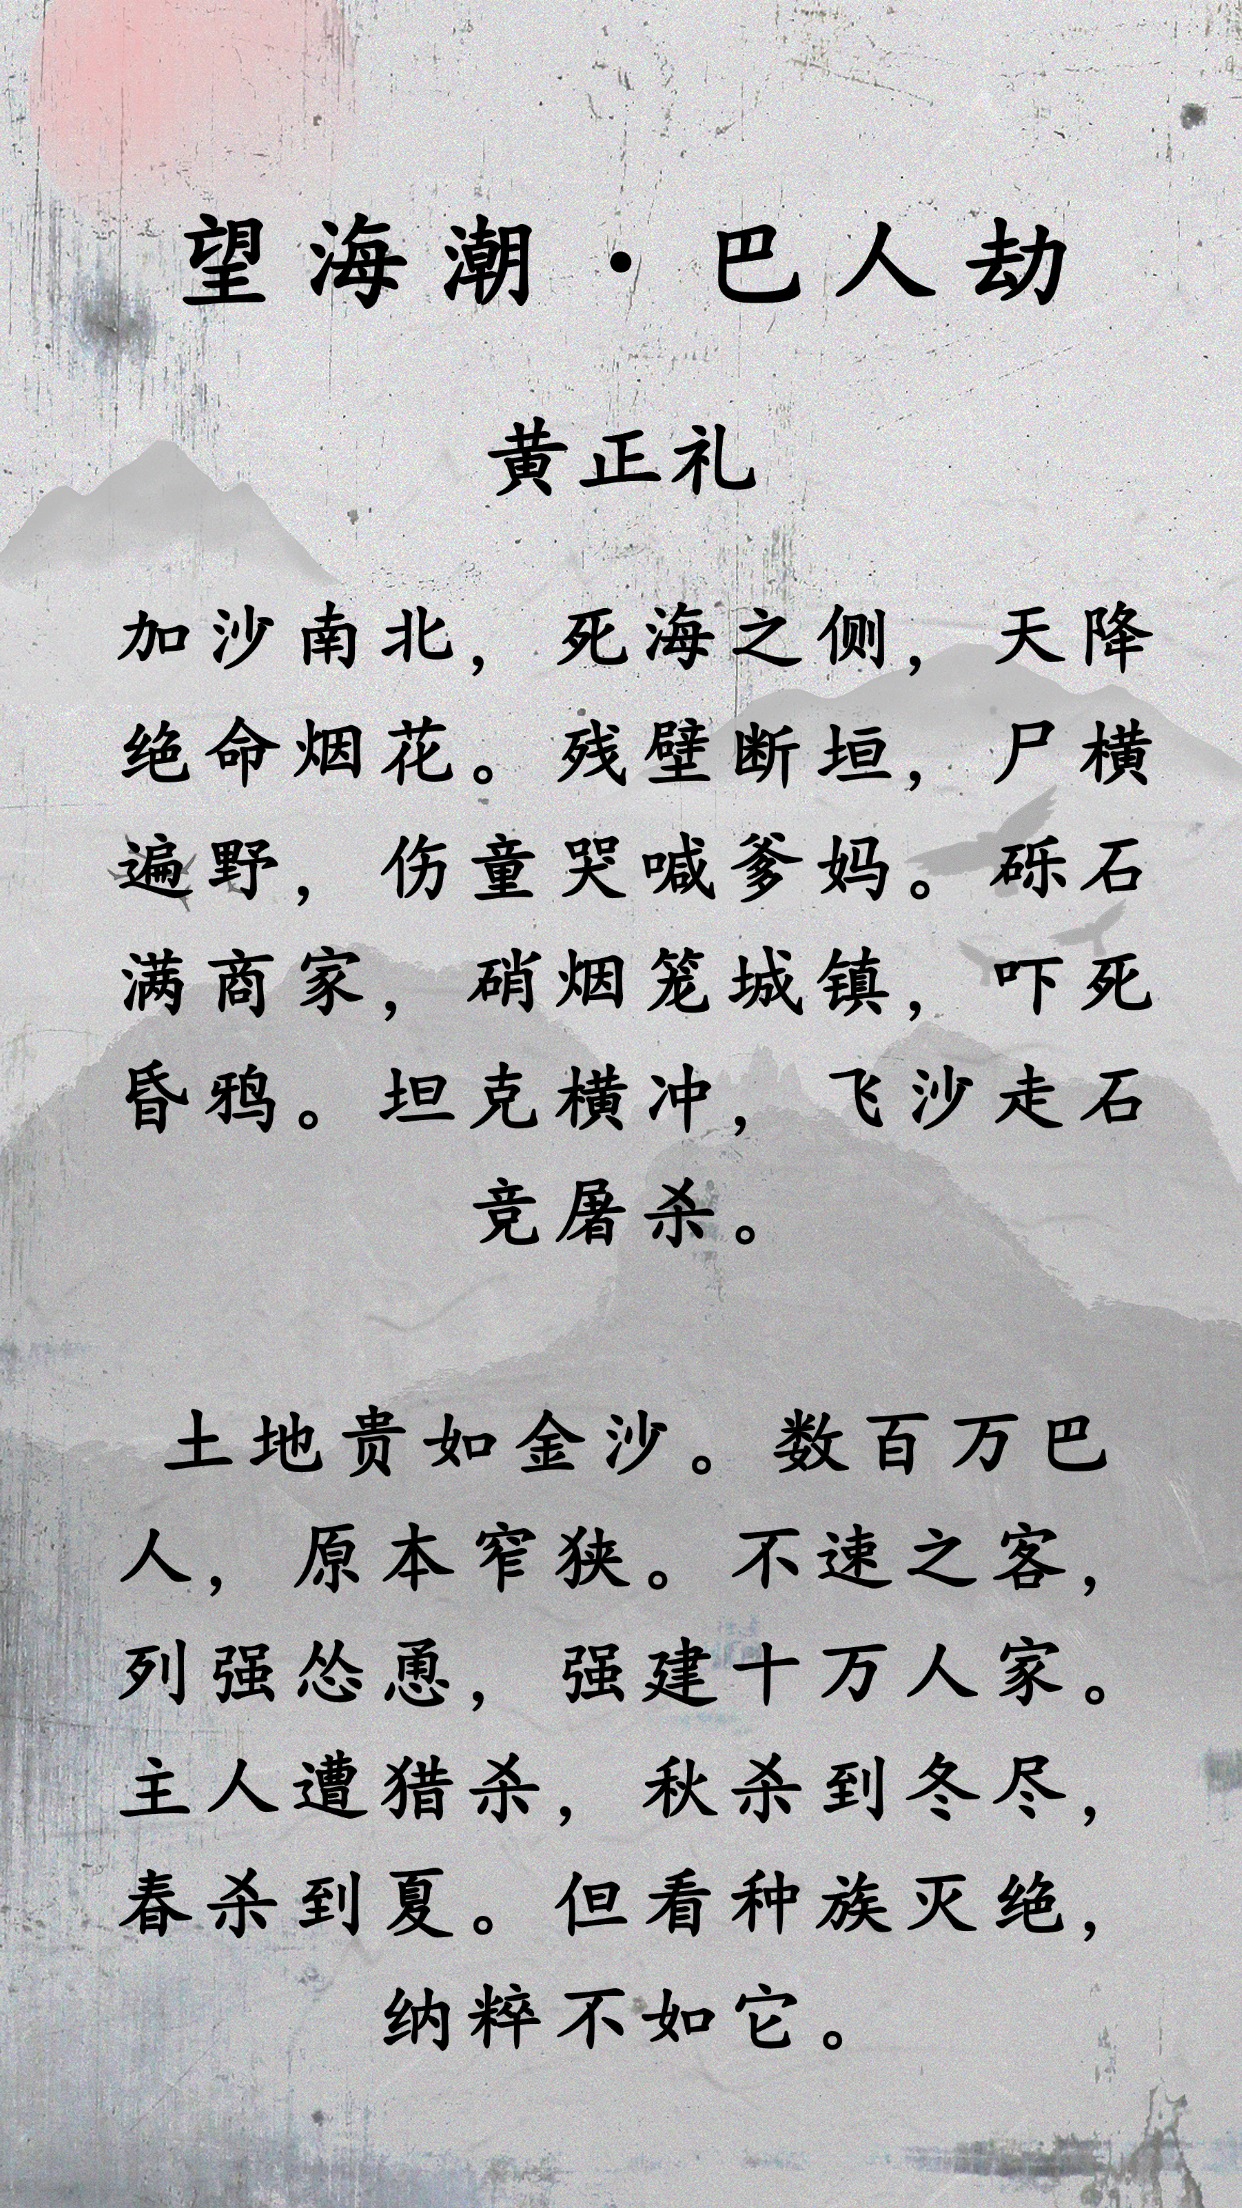 望海潮·巴人劫
黄正礼
加沙南北，死海之侧，天降
绝命烟花。残壁断垣，尸横
遍野，伤童哭喊爹妈。砾石
满商家，硝烟笼城镇，吓死
昏鸦。坦克横冲，飞沙走石
竞屠杀。
土地贵如金沙。数百万巴
人，原本窄狭。不速之客，
列强怂恿，强建十万人家。
主人遭猎杀，秋杀到冬尽，
春杀到夏。但看种族灭绝，
纳粹不如它。